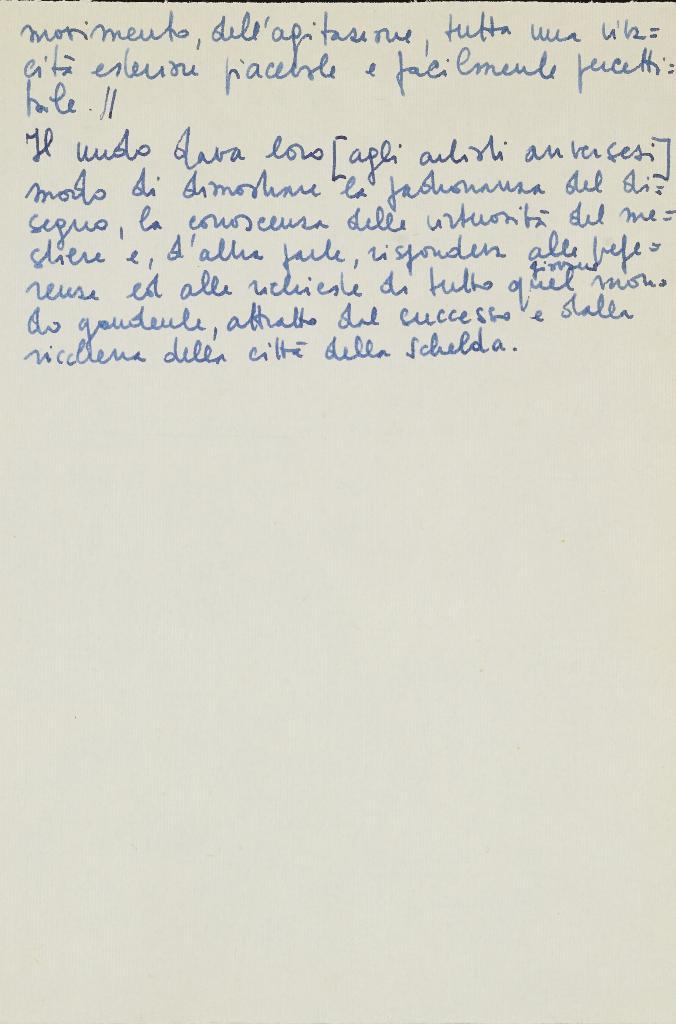 movimento, dell'agitazione, tutta una viva=
cità esteriore piacevole e facilmente percetti=
bile. //
Il nudo dava loro [agli artisti anversesi]
modo di dimostrare la padronanza del di=
segno, la conoscenza delle virtuosità del me=
stiere e, d'altra parte, rispondeva alle prefe=
giovane
renze ed alle richieste di tutto quel mon=
do gaudente, attratto dal successo e dalla
ricchezza della città della Schelda.